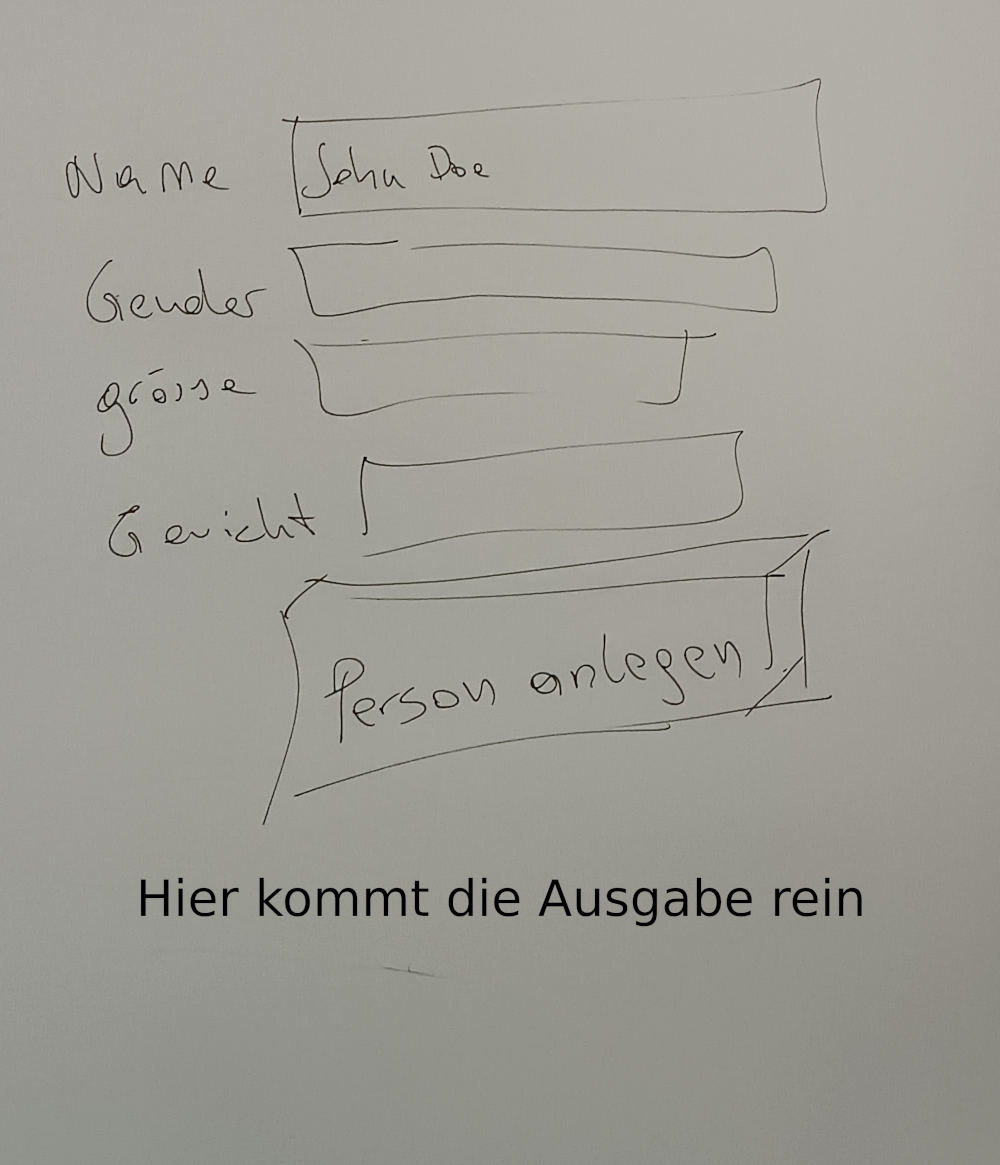 Name John Doe
Gender
grösse
Gewicht
Person anlegen
Hier kommt die Ausgabe rein